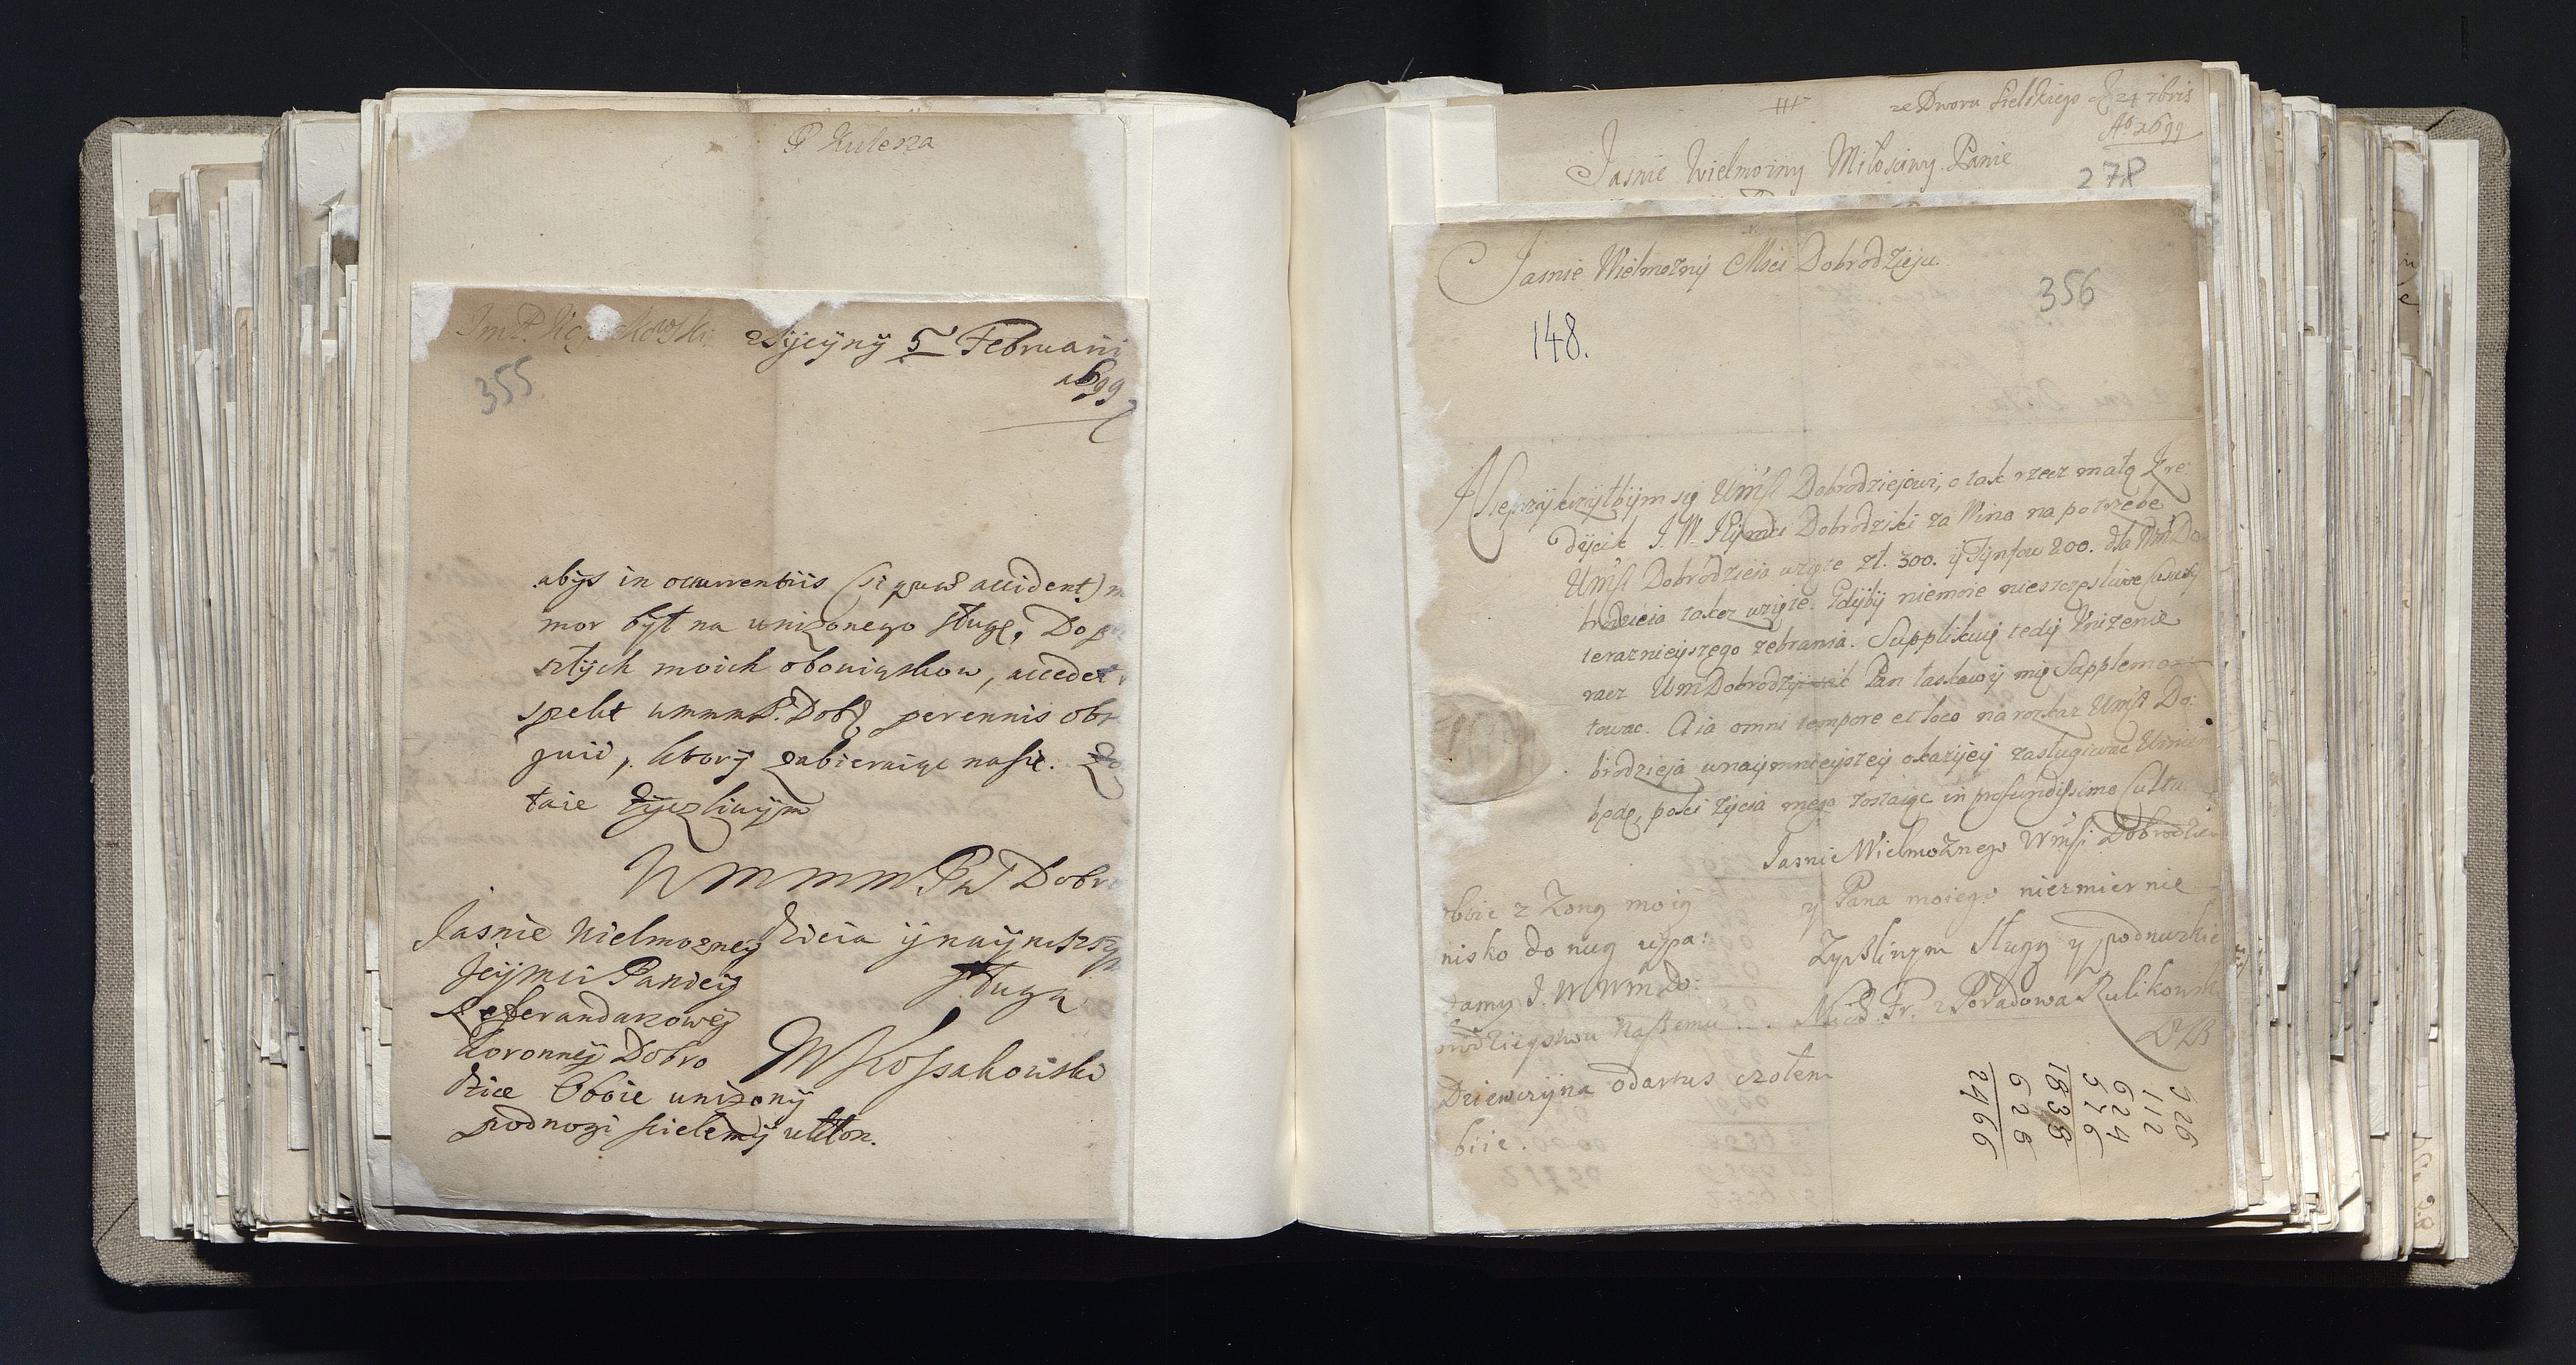 P Kulesza
ImP. Kossakowski z Syczyny 5 Februarii
1699
355
abys in occurrentiis (si quae accident) m
mor był na unizonego sługę, Do prze
szłych moich obowiązkow, accedet
spekt wmmmP. Dobr, perennis obr
guid, ktory zabieraiąc na się. Zo
taie życzliwym
W m m m Pa Dobro
dzieia y naynizszy
sługa
M Kossakowski
Jasnie Wielmozney
Jeÿmci Paniey
Referendarzowey
koronney Dobro
dzice Oboie unizony
podnogi scielemy ukłon.
ze Dworu Sielskiego D 24 7bris
Ao 1699
Jasnie Wielmozny Miłosciwy Panie
278
Jasnie Wielmozny Mści Dobrodzieju.
356
148.
Nieprzykrzyłbym się Wmśi Dobrodziejowi, o tak rzecz małą Zre
dycie J. W. Jeymci Dobrodziki za Wino na potrzebe
Wmśi Dobrodzieia wzięte zł. 300. y Tynfow 200. dla Wm Do
brodzieia takez wzięte. Gdyby niemoie nieszczęsliwe casusy
teraznieyszego zebrania. Supplikuię tedy Unizenie
racz Wm Dobrodziey Pan łaskawy mię Sapplemen
towac. A ia omni tempore et loco na rozkaz Wmśi Do:
brodzieja wnaymnieyszey okaziyey zasługiwac Uniżen
będę, poki życia mego zostaiąc in profundissimo Cultu.
Jasnie Wielmożnego Wmśi Dobrodzie
y Pana moiego niezmiernie
Zyczliwym Sługą y podnuzkie
Mich. Fr. z Poradowa Kulikowsk
oboie z Zoną moią
nisko do nug upa:
damy J. W Wm do:
brodzieystwu naszemu
Dziewczyna odarus czołem
biie.
526
112
624
576
1838
628
2466